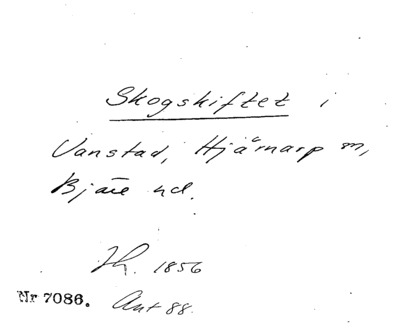 Skogskiftet i
Vanstad, Hjärnarp m,
Bjäre hd.
Jh. 1856
Nr 7086. Ant 88.